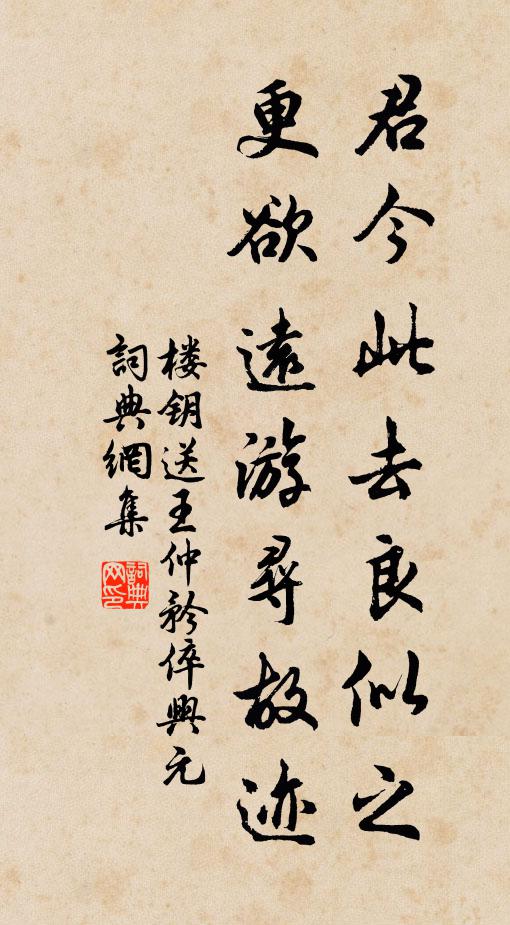 君今此去良似之
更欲遠游尋故迹
楼钥送王仲矜倅興元
詞典網集
詞典网印